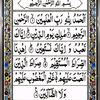 بِسْمِ اللهِ الرَّحْمٰنِ الرَّحِيْمِ
اَلْحَمْدُ لِلّٰهِ رَبِّ الْعٰلَمِيْنَ
الرَّحْمٰنِ الرَّحِيْمِ مٰلِكِ يَوْمِ
الدِّيْنِ اِيَّاكَ نَعْبُدُ وَاِيَّاكَ
نَسْتَعِيْنُ اِهْدِنَا الصِّرَاطَ
الْمُسْتَقِيْمَ صِرَاطَ الَّذِيْنَ
اَنْعَمْتَ عَلَيْهِمْ غَيْرِ الْمَغْضُوْبِ
عَلَيْهِمْ وَلَا الضَّآلِّيْنَ